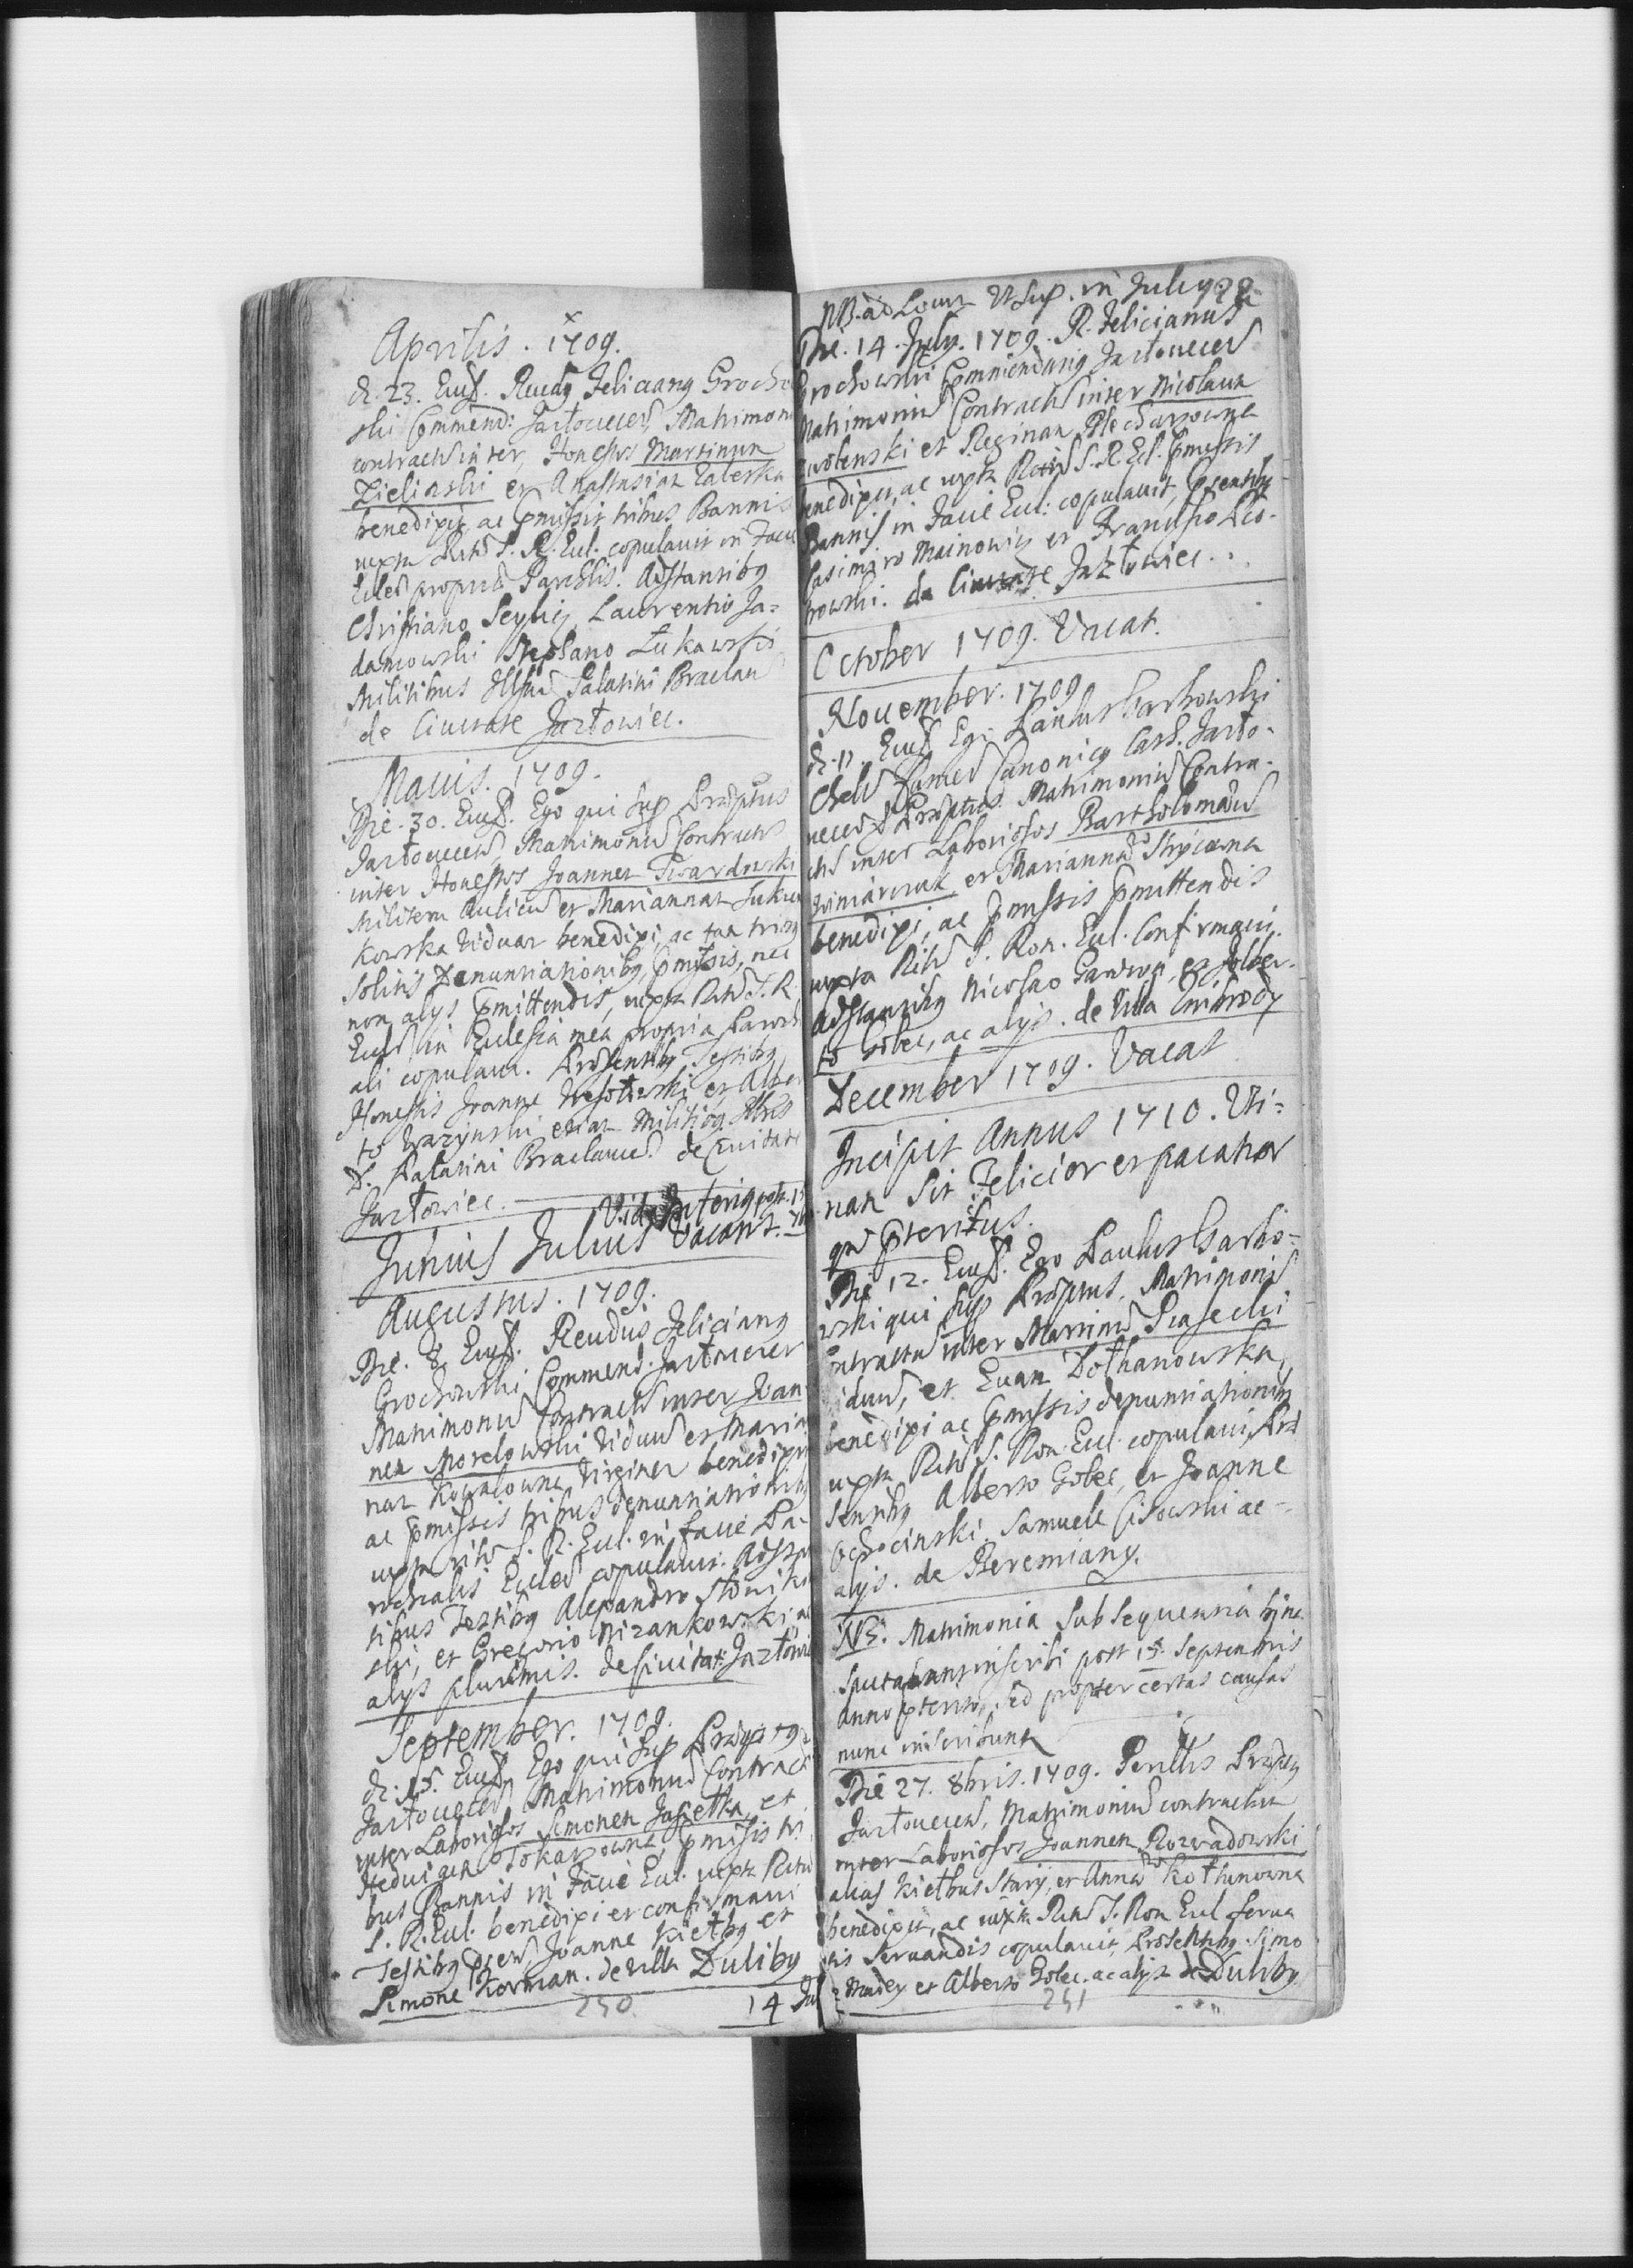 Aprilis. 1709.
d. 23. Eiusd. Rndus Felicianus Grocho
ski Commend: Jazłovecen Matrimon
contractu inter Honestos Martinum
Zielinski et Anastasiam Zaleska
benedixit ac pmissis tribus Bannis
iuxta Ritu S. R. Eccl. copulavit in Facie
Eccles propriæ Parchlis. Adstantibus
Christiano Seylic, Laurentio Ja-
damowski Stephano Łukawski
Militibus Illsmi Palatini Braclav
de Civitate Jazłowiec.
Maius. 1709.
Die. 30. Eiusd. Ego qui sup Præptus
Jazłovecens, Matrimoniu Contractu
inter Honestos Joannem Twardowski
Militem Aulicu et Mariannam Suku
kowska viduam benedixi, ac tam trinis
solitis Denuntiationibus pmissis, nec
non alys pmittendis, iuxta Ritu S. R.
Eccl in Ecclesia mea propria Paroch
ali copulavi. Præsentibus Testibus
Honestis Joanne Wesołowski et Alber
to Wazynski etiam Militibus Illris
D. Palatini Braclavien. de Civitate
Jazłowiec.
Vide Inferius post. 15
Junius Julius Vacant. 7b
Augustus. 1709.
Die. 8. Eiusd. Rendus Felicianus
Grochowski Commend. Jazłovecen
Matrimoniu Contractu inter Joan-
nem Morelowski viduu et Maria
nam Kowalowna Virginem benedixit
ac pmissis tribus denuntiationibus
iuxta ritu S. R. Eccl. in facie Pa-
rochialis Eccles copulavit. Adstan
tibus Testibus Alexandro Słoniko
ski, et Gregorio Nizankowski, ac
alys plurimis. de Civitate Jazłowie
September. 1709.
d. 15. Eiusd Ego qui sup Præptus
Jazłovecen Matrimoniu Contract
inter Laboriosos Simonem Jasietka, et
Hedvigem Tokarzowna pmissis tri
bus Bannis in Facie Eccl. iuxta Ritu
S. R. Eccl. benedixi et confirmavi
Testibus psen Joanne Kiełbus et
Simone Korman. de Villa Duliby
250. 14 Jul
NB. ad Locum Ut Sup. in Julio 92
Die. 14. July. 1709. R. Felicianus
Grochowski Commendarius Jazłovecen
Matrimoniu Contractu inter Nicolaum
Zwolenski et Reginam Blecharzowna
benedixit, ac iuxta Ritu S. R. Eccl. pmissis
Bannis in Facie Eccl: copulavit, psentibus
Casimiro Mainowicz et Francisco Aco-
rowski. de Civitate Jazłowiec.
October 1709. Vacat.
November. 1709
d. 17. Eiusd Ego. Paulus Garkowski
Chels Camen Canonicus Cath. Jazło-
vecens Præptus. Matrimoniu Contra-
ctu inter Laboriosos Bartholomæu
Winiarczuk et Marianna Strycowna
benedixi, ac pmissis pmittendis
iuxta Ritu S. Rom. Eccl. Confirmavi.
Adstantibus Nicolao Gawron, et Alber-
to Golec, ac alys. de Villa Cwitowy
December 1709. Vacat
Incipit Annus 1710. Uti-
nam Sit Felicior et pacatior
qm pteritus.
Die 12. Eiusd. Ego Paulus Garko-
wski qui sup Præptus, Matrimoniu
ontractu inter Martinu Piasecki
iduu, et Evam Dołhanowska,
benedixi ac pmissis denuntiationibus
iuxta Ritu S. Rom. Eccl. copulavi, Præ
sentibus Alberto Golec, et Joanne
Ochocinski, Samuele Cisowski ac
alys. de Beremiany.
NB. Matrimonia Subsequentia hic
inscribi post 15. Septembris
Anno pterito, sed propter certas causas
nunc inscribunt
Die 27. 8bris. 1709. Perillis Præptus
Jazłovecen, Matrimoniu contractum
inter Laboriosos Joannem Rozwadowski
alias Kiełbus Stary, et Anna Kołtunowna
benedixit, ac iuxta Ritu S. Rom Eccl serva
tis Servandis copulavit, Præsentibus Simo
e Madey et Alberto Golec. ac alys de Duliby
251